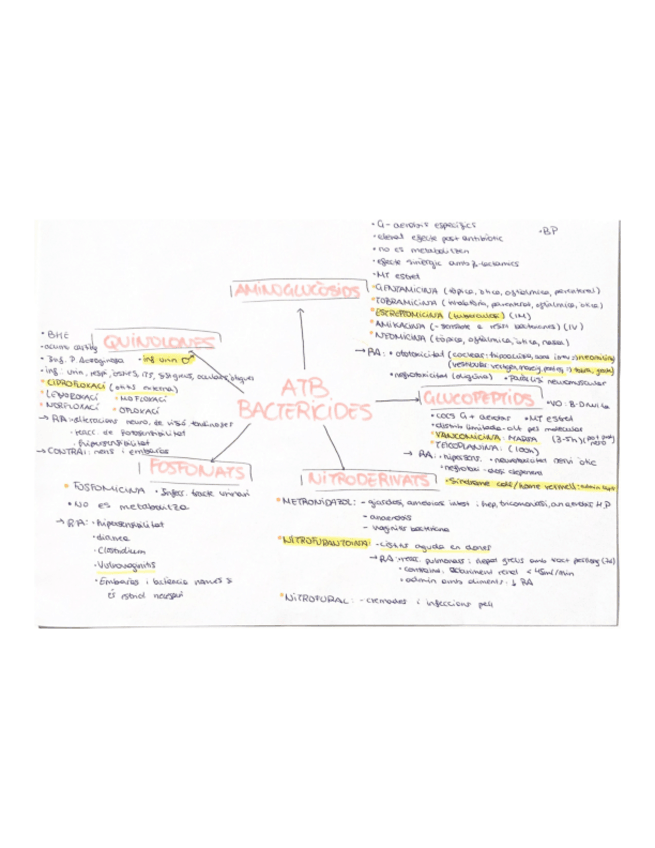 ATB
BACTERICIDES
AMINOGLUCÒSIDS
• G- aerobis específics
• BP
• elevat efecte post antibiòtic
• no es metabolitzen
• efecte sinèrgic amb β-lactàmics
• MT estret
* GENTAMICINA (tòpica, òtica, oftàlmica, parenteral)
* TOBRAMICINA (inhalatòria, parenteral, oftàlmica, òtica)
* ESTREPTOMICINA (tuberculosi) (IM)
* AMIKACINA (- sensible a resis bacterianes) (IV)
* NEOMICINA (tòpica, oftàlmica, òtica, nasal)
→ RA: • ototoxicitat (coclear: hipoacúsia, neomicina)
(vestibular: vertigen
• nefrotoxicitat (oligúria) • Paràlisi neuromuscular
QUINOLONES
• BHE
• Inf. P. Aeruginosa • inf urin ♂
• inf: urin, respi, òssies, ITS, oculars, òtiques
* CIPROFLOXACÍ (otitis externa)
* LEVOFLOXACÍ * MOFLOXACÍ
* NORFLOXACÍ * OFLOXACÍ
→ RA: • alteracions neuro, de visió
• reacc. de fotosensibilitat
• hipersensibilitat
→ CONTRAI: nens i embaràs
GLUCOPEPTIDS
• VO: B-Davila
• COCS G+ aerobis • MT estret
• distrib limitada - alt pes molecular
* VANCOMICINA: MARSA (3-5h)
* TEICOPLANINA: (100h)
→ RA: • hipersens. • neurotoxicitat nervi òtic
• nefrotox - dosi depenent
• Síndrome coll/home vermell: admin
FOSFONATS
* FOSFOMICINA • Infecc. tracte urinari
• NO es metabolitza
→ RA: • hipersensibilitat
• diarrea
• Clostridium
• Vulvovaginitis
• Embaràs i lactància només si
és estrict necessari
NITRODERIVATS
* METRONIDAZOL: - giardasi, amebiasi intest i hep, tricomoniasi, H.P
- anaerobis
- vaginitis bacteriana
* NITROFURANTOINA: - cistitis aguda en dones
→ RA: reacc. pulmonars i hepat greus amb tract perllong (7d)
• contraind. aclariment renal < 45ml/min
• admin amb aliments: ↓ RA
* NITROFURAL: - cremades i infeccions pell